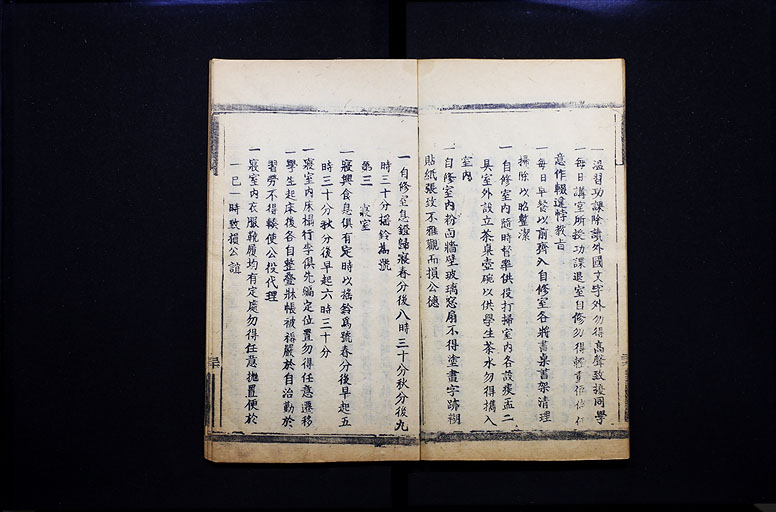 一溫習功課除讀外國文字外勿得高聲致擾同學
一每日講室所授功課退室自修勿得輕重
意作輟違悖敎旨
一每日早餐以前齊入自修室各將書桌書架清理
掃除以昭整潔
一自修室內隨時督率供役打掃室內各設痰盂二
具室外設立茶桌壺碗以供學生茶水勿得攜入
室內
一自修室內粉白牆壁玻璃窗扇不得塗畫字跡糊
貼紙張致不雅觀而損公德
一自修室息鐙歸寢春分後八時三十分秋分後九
時三十分搖鈴為號
第三 寢室
一寢興食息俱有定時以搖鈴為號春分後早起五
時三十分秋分後早起六時三十分
一寢室內床榻行李俱先編定位置勿得任意遷移
一學生起床後各自整疊牀帳被褥嚴於自治勤於
習勞不得輒使公役代理
一寢室內衣服靴履均有定處勿得任意拋置便於
一己一時致損公誼